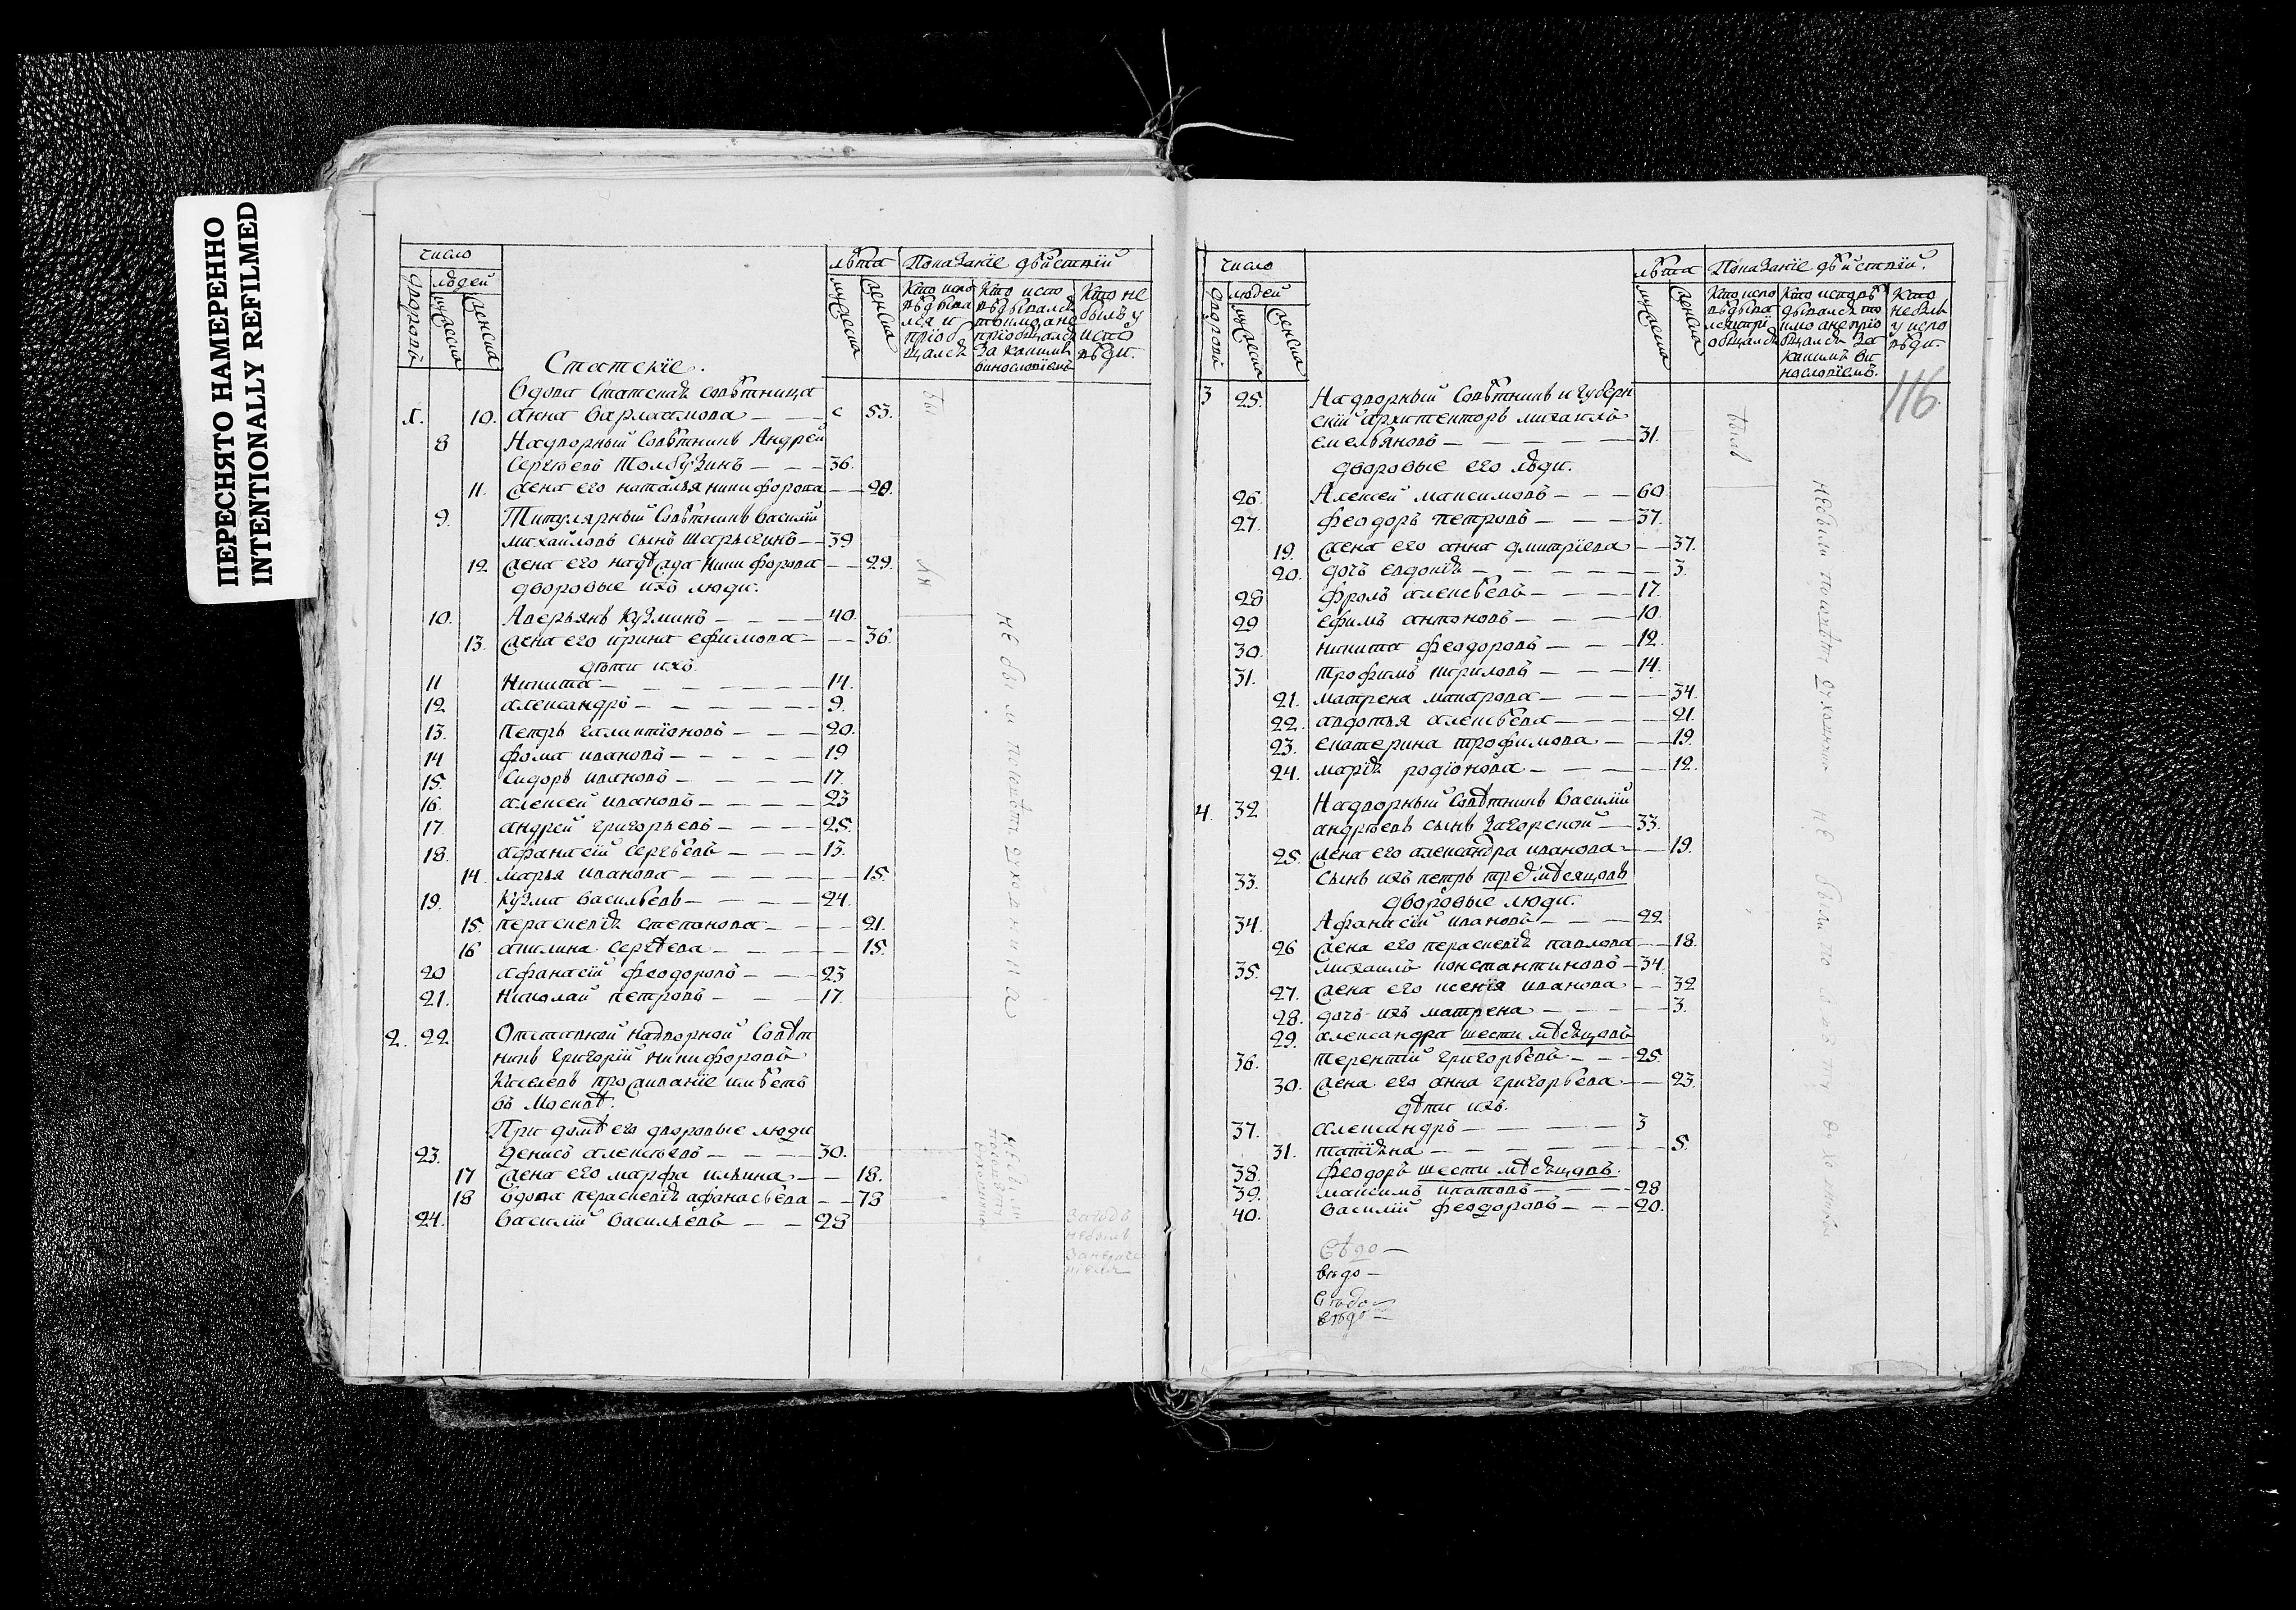 ПЕРЕСНЯТО НАМЕРЕННО
INTENTIONALLY REFILMED
число
дворовъ
людей
мужеска
женска
лѣта
мужеска
женска
Показанїе дѣйствїй
Кто испо
вѣдыва
лся и
прїоб
щался
Кто испо
вѣдывался
токмо, а не
прїобщался
за какимъ
винословїемъ
Кто не
былъ у
испо
вѣди.
Статскїе.
Вдова Статская совѣтница
1. 10. анна варлаамова — — 53.
8 Надворный Совѣтникъ Андрей
Сергѣевъ Толбузинъ — — 36.
11. жена его наталья никифорова — — 28.
9. Титулярный Совѣтникъ василїй
михайловъ сынъ Шарыгинъ — 39
12 жена его надѣжда никифорова — — 29.
дворовые ихъ люди.
10. Аверьянъ Кузминъ — — — 40.
13. жена его ирина ефимова — — 36.
дѣти ихъ.
11 Никита — — — — — 14.
12 александръ — — — — — 9.
13. петръ галактїоновъ — — — 20.
14 фома ивановъ — — — — 19
15. Сидоръ ивановъ — — — — 17.
16. алексей ивановъ — — — — 23
17. андрей григорьевъ — — — 25.
18. афанасїй сергѣевъ — — — 13.
14. марья иванова — — — — — 15.
19. Кузма васильевъ — — — — 24.
15. параскевїя степанова — — — — 21.
16 акилина сергѣева — — — — — 15.
20 афанасїй феодоровъ — — — 23
21. Николай петровъ — — — 17.
2. 22 Отставной надворной Совѣт
никъ григорїй никифоровъ
Киселевъ прожыванїе имѣетъ
въ Москвѣ.
При домѣ его дворовые люди
23. Денисъ алексѣевъ — — — 30.
17 жена его марфа ильина — — 18.
18 вдова параскевїя афанасьева — — 78
24. василїй васильевъ — — 28
не были по совѣту духовника
не были
по совѣту
духовника
число
дворовъ
людей
мужеска
женска
лѣта
мужеска
женска
Показанїе дѣйствїй.
Кто испо
вѣдыва
лся и прї
общался
Кто исповѣ
дывался то
кмо а не прїо
бщался за
какимъ ви
нословїемъ.
Кто
не былъ
у испо
вѣди.
116
3 25. Надворный Совѣтникъ и губерн
скїй архитекторъ михаилъ
емельяновъ — — — — — 31.
дворовые его люди.
26. Алексей максимовъ — — — 60.
27. феодоръ петровъ — — — 37.
19. жена его анна дмитрїева — — 37.
20. дочь евдокїя — — — — — 3.
28 фролъ алексѣевъ — — — 17.
29 ефимъ антоновъ — — — 10.
30. никита феодоровъ — — — 12.
31. трофимъ кириловъ — — — 14.
21. матрена макарова — — — — 34.
22. авдотья алексѣева — — — — 21.
23. екатерина трофимова — — — 19.
24. марїя родїонова — — — — 12.
былъ
4. 32 Надворный Совѣтникъ василїй
андрѣевъ сынъ Загорской — 33.
25. жена его александра иванова — — 19.
33. сынъ ихъ петръ трехъ мѣсяцовъ
дворовые люди.
34. Афанасїй ивановъ — — — 22
26 жена его параскевїя павлова — — 18.
35. михаилъ константиновъ — 34.
27. жена его ксенїя иванова — — 32
28. дочь ихъ матрена — — — — 3.
29. александра шести мѣсяцовъ
36. терентїй григорьевъ — — — 25.
30. жена его анна григорьева — — 23.
дѣти ихъ.
37. александръ — — — — — 3
31. татїяна — — — — — — 5.
38. феодоръ шести мѣсяцовъ.
39. максимъ ипатовъ — — — — 28
40. василїй феодоровъ — — — 20.
не были по совѣту духовника
не были по совѣту духовника